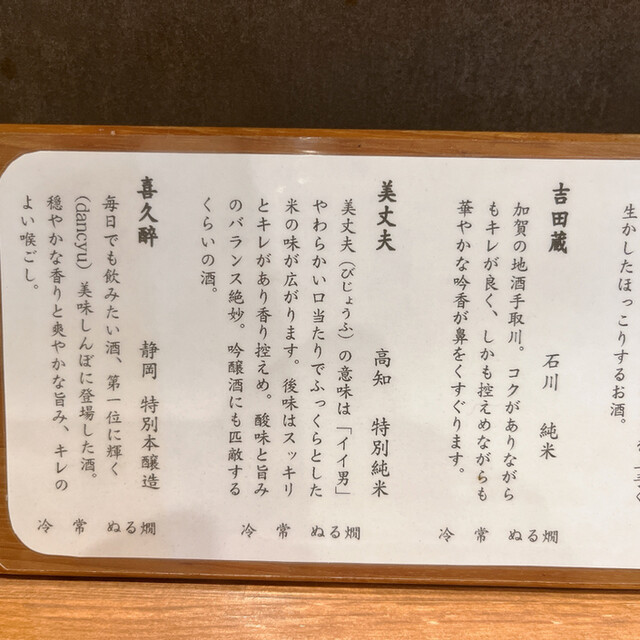 生かしたほっこりするお酒。
吉田蔵　石川　純米
加賀の地酒手取川。コクがありながら
もキレが良く、しかも控えめながらも
華やかな吟香が鼻をくすぐります。
冷　常　ぬる燗
美丈夫　高知　特別純米
美丈夫（びじょうふ）の意味は「イイ男」
やわらかい口当たりでふっくらとした
米の味が広がります。後味はスッキリ
とキレがあり香り控えめ。酸味と旨み
のバランス絶妙。吟醸酒にも匹敵する
くらいの酒。
冷　常　ぬる燗
喜久酔　静岡　特別本醸造
毎日でも飲みたい酒、第一位に輝く
（dancyu）美味しんぼに登場した酒。
穏やかな香りと爽やかな旨み、キレの
よい喉ごし。
冷　常　ぬる燗